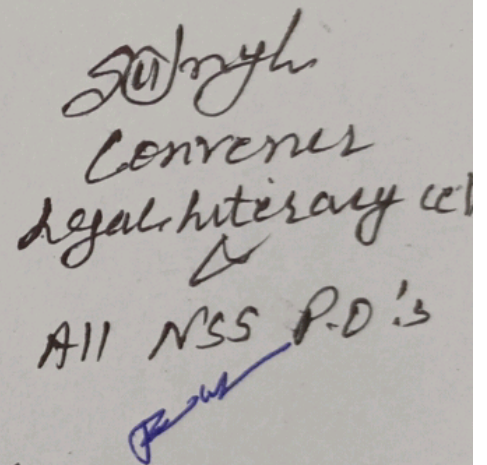 Convener
Legal Literary Cel
&
All NSS P.O's